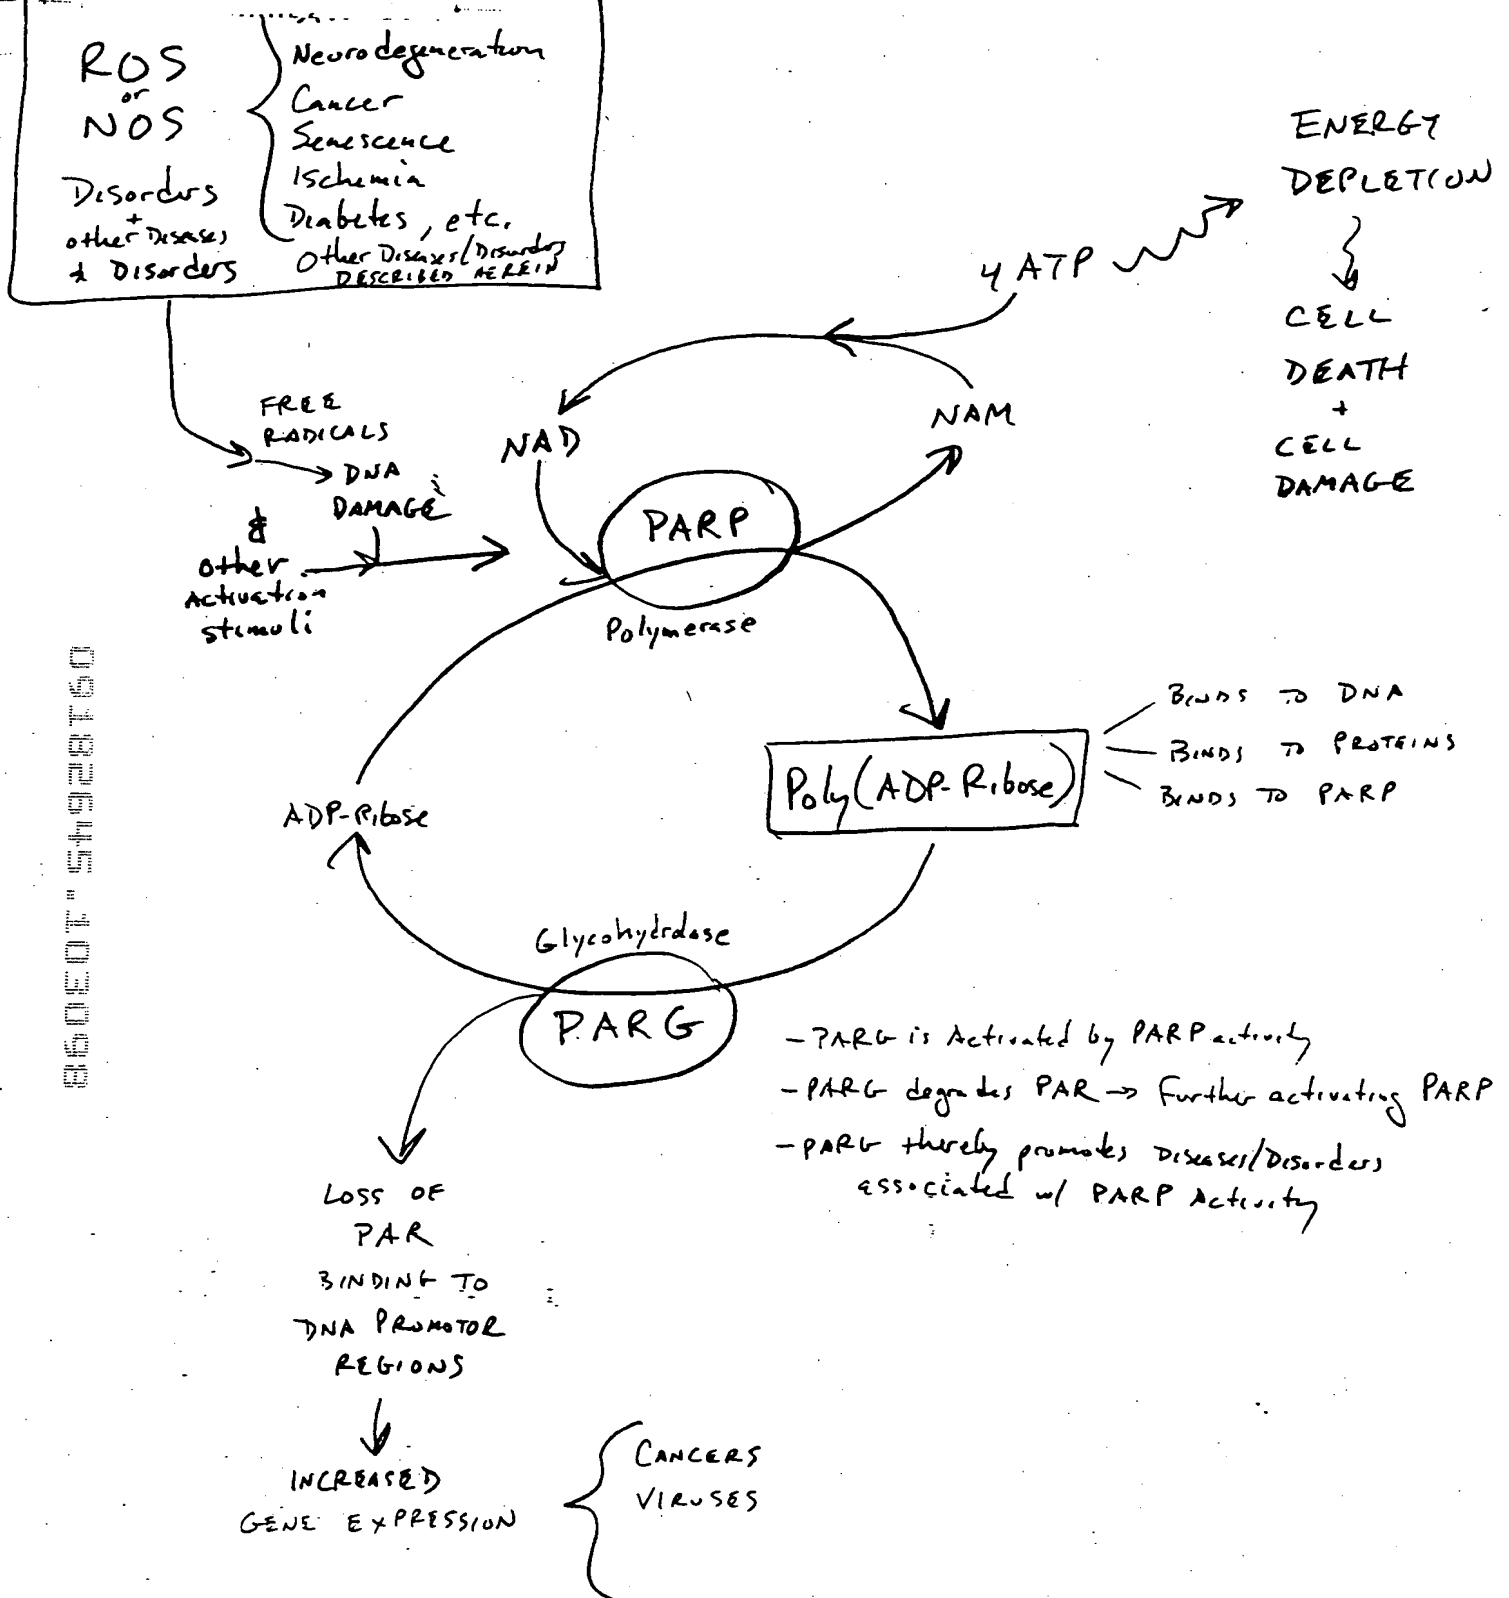 ROS
or
NOS
Disorders
+
other Diseases
& Disorders
Neurodegeneration
Cancer
Senescence
Ischemia
Diabetes, etc.
Other Diseases/Disorders
DESCRIBED HEREIN
ENERGY
DEPLETION
CELL
DEATH
+
CELL
DAMAGE
4 ATP
NAM
NAD
FREE
RADICALS
DNA
DAMAGE
&
other
Activation
stimuli
PARP
Polymerase
Poly(ADP-Ribose)
BINDS TO DNA
BINDS TO PROTEINS
BINDS TO PARP
ADP-Ribose
Glycohydrolase
PARG
- PARG is Activated by PARP activity
- PARG degrades PAR → Further activating PARP
- PARG thereby promotes Diseases/Disorders
associated w/ PARP Activity
LOSS OF
PAR
BINDING TO
DNA PROMOTOR
REGIONS
INCREASED
GENE EXPRESSION
CANCERS
VIRUSES
09182845.103098